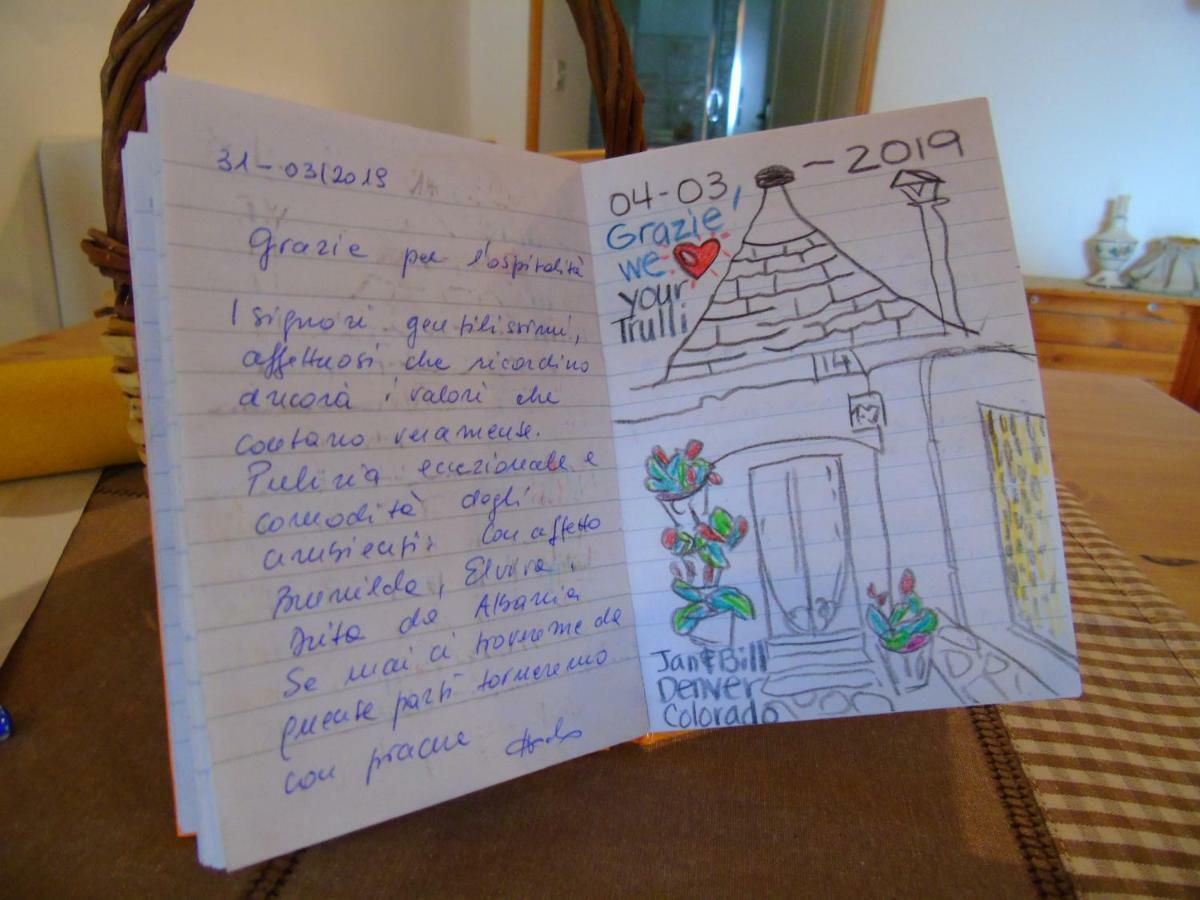 31-03/2019
Grazie per l'ospitalità
I signori gentilissimi,
affettuosi che ricordino
ancora i valori che
contano veramente.
Pulizia eccezionale e
comodità degli
ambienti. Con affetto
Brunilda, Elvira,
Drita da Albania
Se mai ci troveremo da
queste parti torneremo
con piacere
04-03, -2019
Grazie,
we
your
Trulli
14
Jan & Bill
Denver
Colorado